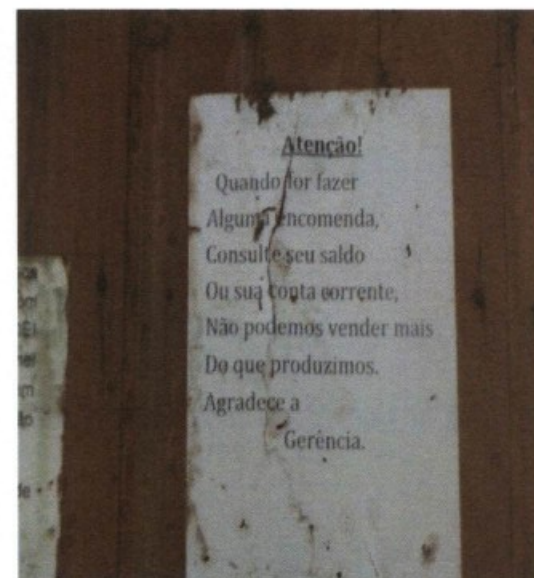 Atenção!
Quando for fazer
Alguma encomenda,
Consulte seu saldo
Ou sua conta corrente,
Não podemos vender mais
Do que produzimos.
Agradece a
Gerência.